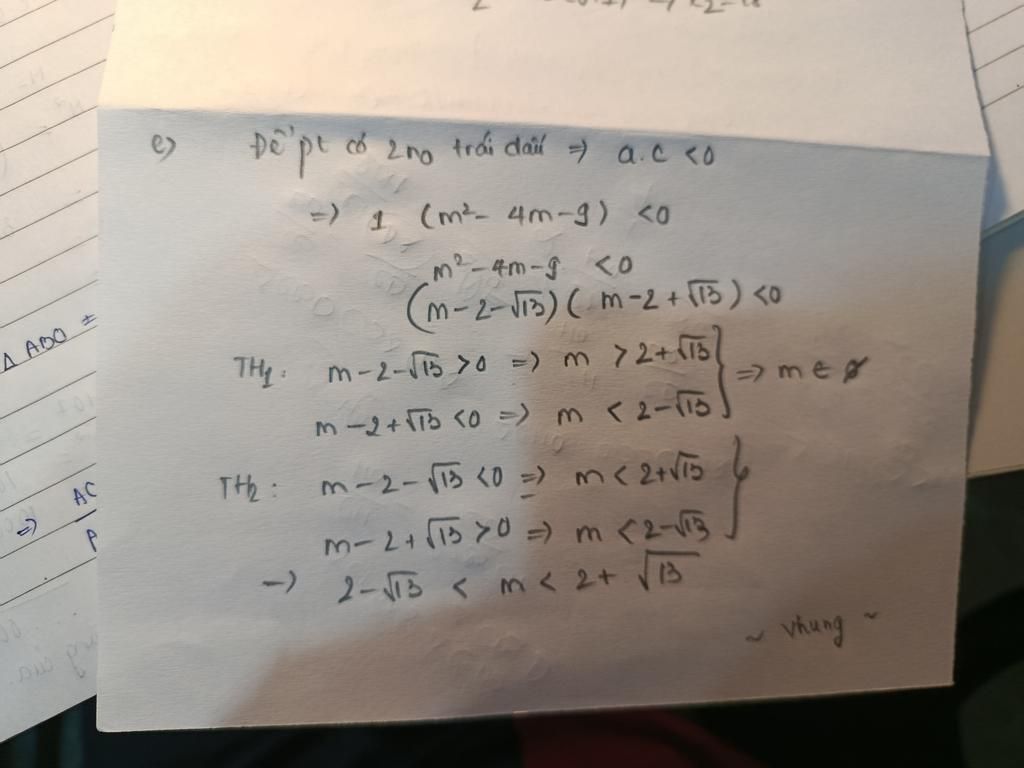 e) Để pt có 2 no trái dấu => a.c < 0
=> 1 (m² - 4m - 9) < 0
m² - 4m - 9 < 0
(m - 2 - √13)( m - 2 + √13) < 0
TH1: m - 2 - √13 > 0 => m > 2 + √13
=> m ∈ ∅
m - 2 + √13 < 0 => m < 2 - √13
TH2: m - 2 - √13 < 0 => m < 2 + √13
m - 2 + √13 > 0 => m < 2 - √13
-> 2 - √13 < m < 2 + √13
~ vhung ~
Δ ABO =
=> AC